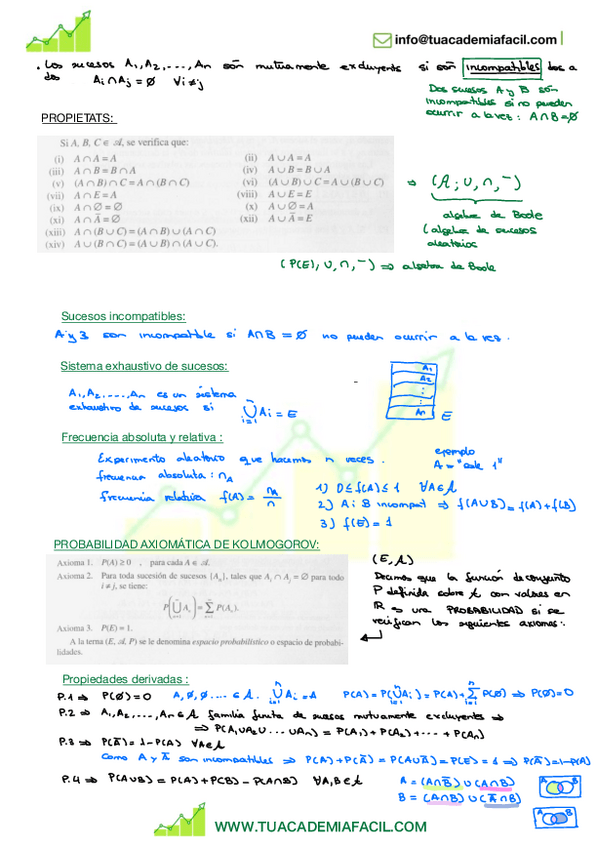 info@tuacademiafacil.com
. Los sucesos A₁, A₂, ..., An son mutuamente excluyents si son incompatibles dos a
dos Ai ∩ Aj = Ø ∀i≠j
Dos sucesos A y B son
incompatibles si no pueden
ocurrir a la vez: A∩B=Ø
PROPIETATS:
Si A, B, C ∈ 𝒜, se verifica que:
(i) A ∩ A = A (ii) A ∪ A = A
(iii) A ∩ B = B ∩ A (iv) A ∪ B = B ∪ A
(v) (A ∩ B) ∩ C = A ∩ (B ∩ C) (vi) (A ∪ B) ∪ C = A ∪ (B ∪ C)
(vii) A ∩ E = A (viii) A ∪ E = E
(ix) A ∩ ∅ = ∅ (x) A ∪ ∅ = A
(xi) A ∩ Ā = ∅ (xii) A ∪ Ā = E
(xiii) A ∩ (B ∪ C) = (A ∩ B) ∪ (A ∩ C)
(xiv) A ∪ (B ∩ C) = (A ∪ B) ∩ (A ∪ C).
⇒ (𝒜; ∪, ∩, ¯)
algebra de Boole
(algebra de sucesos
aleatorios
(P(E), ∪, ∩, ¯) ⇒ algebra de Boole
Sucesos incompatibles:
A y 3 son incompatible si A∩B = Ø no pueden ocurrir a la vez.
Sistema exhaustivo de sucesos:
A₁, A₂, ..., An es un sistema
exhaustivo de sucesos si ⋃ⁿᵢ₌₁ Ai = E
A₁
A₂
:
:
An
E
Frecuencia absoluta y relativa :
Experimento aleatorio que hacemos n veces.
ejemplo
A = "sale 1"
frecuencia absoluta : nA
frecuencia relativa f(A) = nA/n
1) 0≤f(A)≤1 ∀A∈𝒜
2) A i B incompat ⇒ f(A∪B) = f(A)+f(B)
3) f(E) = 1
PROBABILIDAD AXIOMÁTICA DE KOLMOGOROV:
Axioma 1. P(A) ≥ 0 , para cada A ∈ 𝒜.
Axioma 2. Para toda sucesión de sucesos {Aₙ}, tales que Aᵢ ∩ Aⱼ = ∅ para todo
i ≠ j, se tiene:
P(⋃ Aₙ) = Σ P(Aₙ).
Axioma 3. P(E) = 1.
A la terna (E, 𝒜, P) se le denomina espacio probabilístico o espacio de probabi-
lidades.
(E, 𝒜)
Decimos que la función de conjunto
P definida sobre 𝒜 con valores en
ℝ es una PROBABILIDAD si se
verifican los siguientes axiomas:
Propiedades derivadas :
P.1 ⇒ P(Ø)=0 A, Ø, Ø .... ∈ 𝒜. ⋃ⁿᵢ₌₁ Ai = A P(A) = P(⋃ⁿᵢ₌₁ Ai) = P(A) + Σ P(Ø) ⇒ P(Ø)=0
P.2 ⇒ A₁, A₂, ..., An ∈ 𝒜 familia finita de sucesos mutuamente excluyentes ⇒
⇒ P(A₁∪A₂∪ ... ∪An) = P(A₁) + P(A₂) + ··· + P(An)
P.3 ⇒ P(Ā) = 1 - P(A) ∀A∈𝒜
Como A y Ā son incompatibles ⇒ P(A) + P(Ā) = P(A∪Ā) = P(E) = 1 ⇒ P(Ā)=1-P(A)
P.4 ⇒ P(A∪B) = P(A) + P(B) - P(A∩B) ∀A,B∈𝒜
A = (A∩B̄) ∪ (A∩B)
B = (A∩B) ∪ (Ā∩B)
A B
A B
WWW.TUACADEMIAFACIL.COM